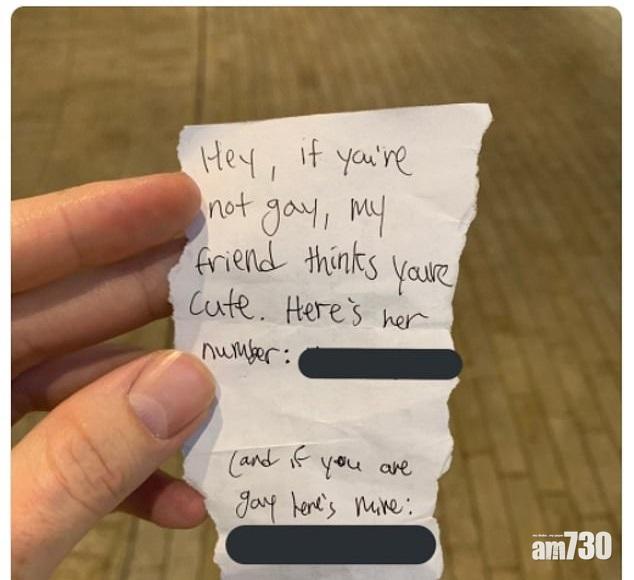 Hey, if you're
not gay, my
friend thinks youre
cute. Here's her
number:
(and if you are
gay here's mine:
am730